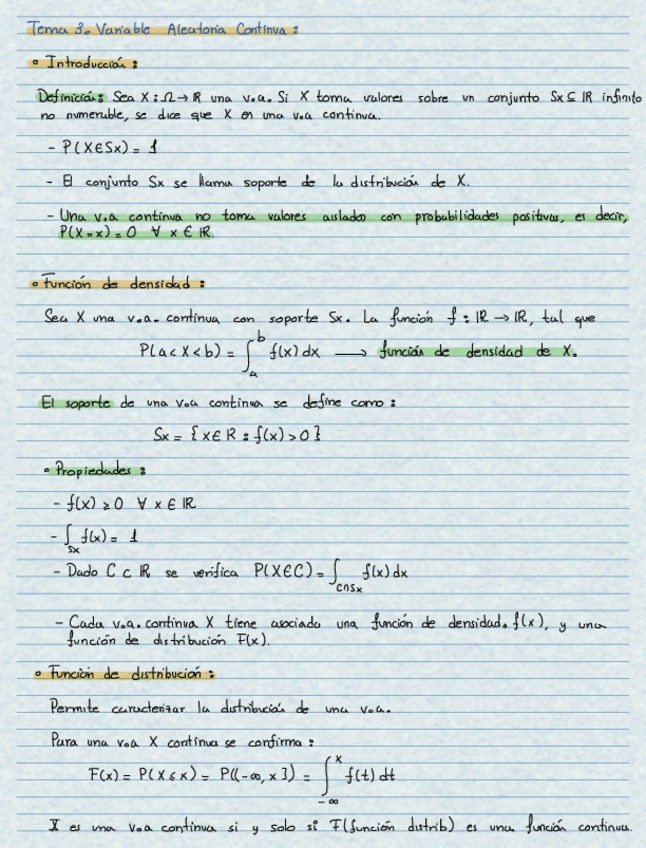 Tema 3. Variable Aleatoria Continua:
• Introducción:
Definición: Sea X: Ω → ℝ una v.a. Si X toma valores sobre un conjunto Sx ⊆ ℝ infinito
no numerable, se dice que X es una v.a continua.
- P(X∈Sx) = 1
- El conjunto Sx se llama soporte de la distribución de X.
- Una v.a continua no toma valores aislados con probabilidades positivas, es decir,
P(X=x) = 0 ∀ x ∈ ℝ.
• Función de densidad:
Sea X una v.a. continua con soporte Sx. La función f: ℝ → ℝ, tal que
P(a < X < b) = ∫_a^b f(x) dx → función de densidad de X.
El soporte de una v.a continua se define como:
Sx = { x ∈ ℝ : f(x) > 0 }
• Propiedades:
- f(x) ≥ 0 ∀ x ∈ ℝ
- ∫_Sx f(x) = 1
- Dado C ⊂ ℝ se verifica P(X∈C) = ∫_C∩Sx f(x) dx
- Cada v.a. continua X tiene asociada una función de densidad. f(x), y una
función de distribución F(x).
• Función de distribución:
Permite caracterizar la distribución de una v.a.
Para una v.a X continua se confirma:
F(x) = P(X ≤ x) = P((-∞, x]) = ∫_-∞^x f(t) dt
X es una v.a continua si y solo si F(función distrib) es una función continua.